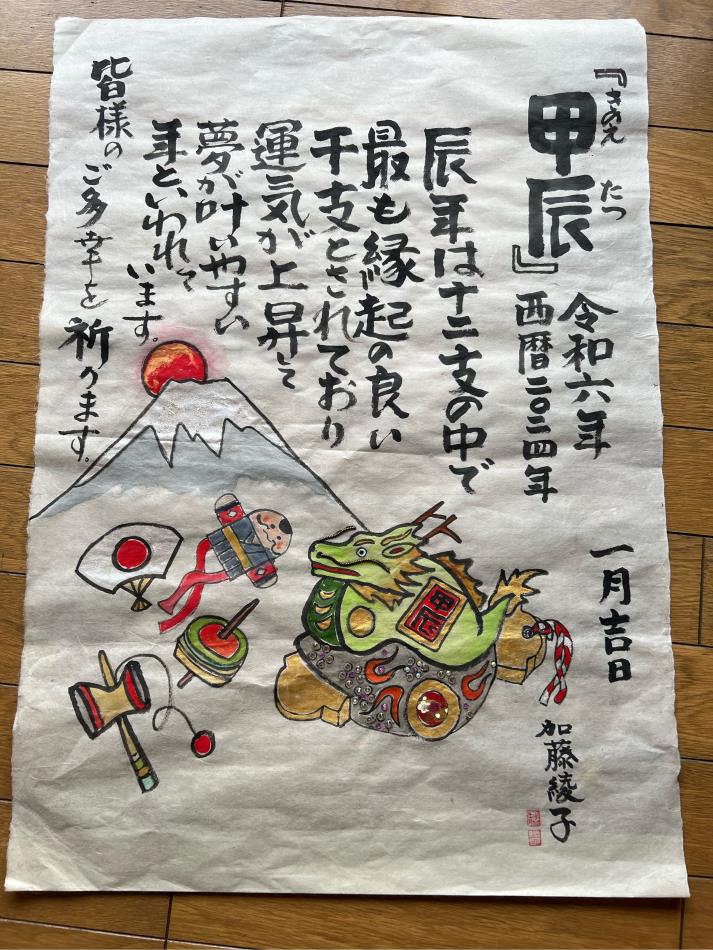 『甲辰』
きのえ たつ
令和六年
西暦二〇二四年
一月吉日
加藤綾子
辰年は十二支の中で
最も縁起の良い
干支とされており
運気が上昇して
夢が叶いやすい
年といわれて
います。
皆様のご多幸を
祈ります。
甲辰